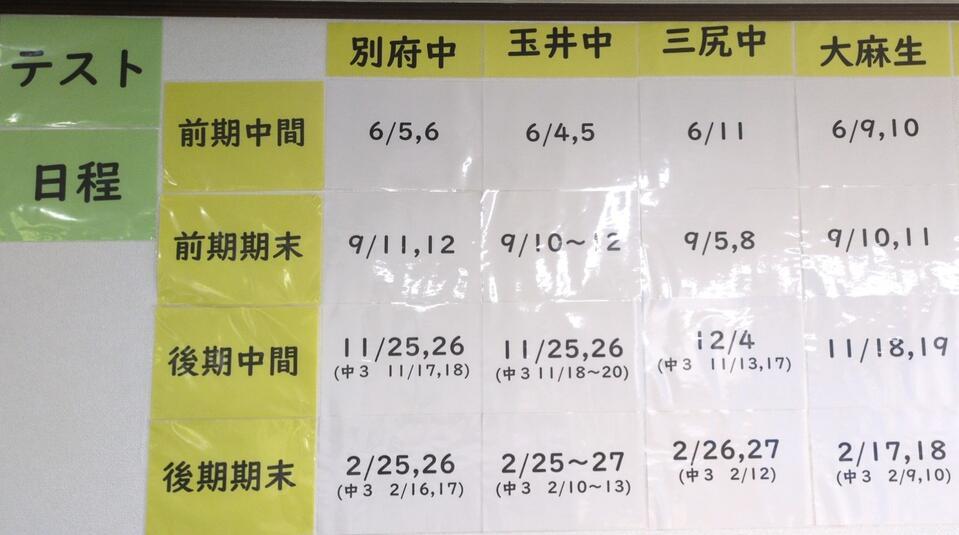 テスト
日程
別府中 玉井中 三尻中 大麻生
前期中間 6/5,6 6/4,5 6/11 6/9,10
前期期末 9/11,12 9/10～12 9/5,8 9/10,11
後期中間 11/25,26 11/25,26 12/4 11/18,19
(中3 11/17,18) (中3 11/18～20) (中3 11/13,17)
後期期末 2/25,26 2/25～27 2/26,27 2/17,18
(中3 2/16,17) (中3 2/10～13) (中3 2/12) (中3 2/9,10)